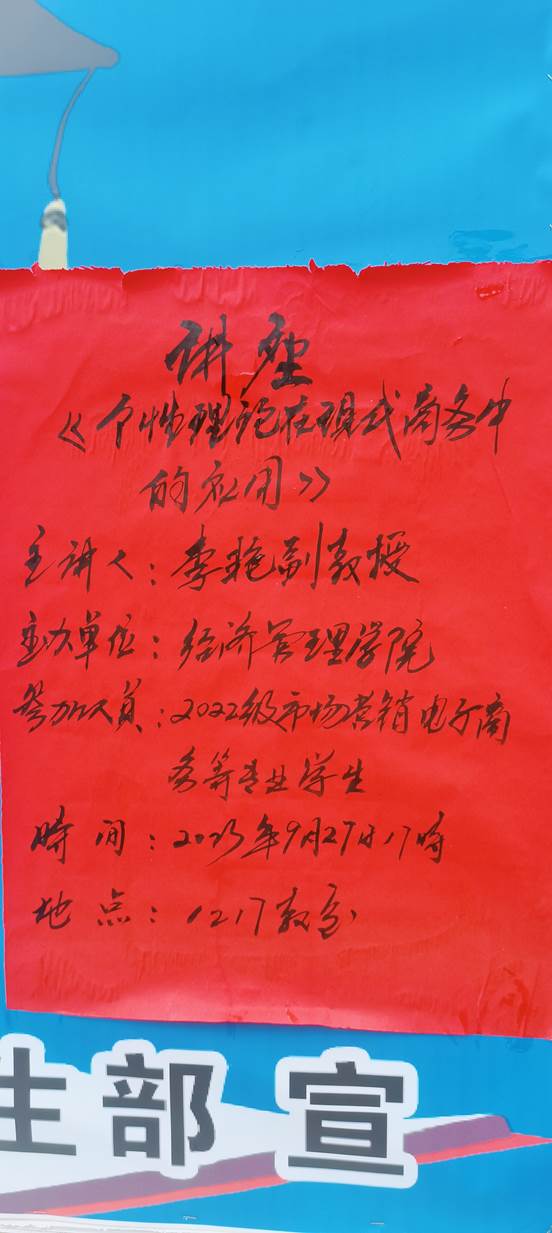 讲座
《个性理论在现代商务中
的应用》
主讲人：李艳副教授
主办单位：经济管理学院
参加人员：2022级市场营销电子商
务等专业学生
時間：2023年9月27日17時
地点：1217教室
生部 宣